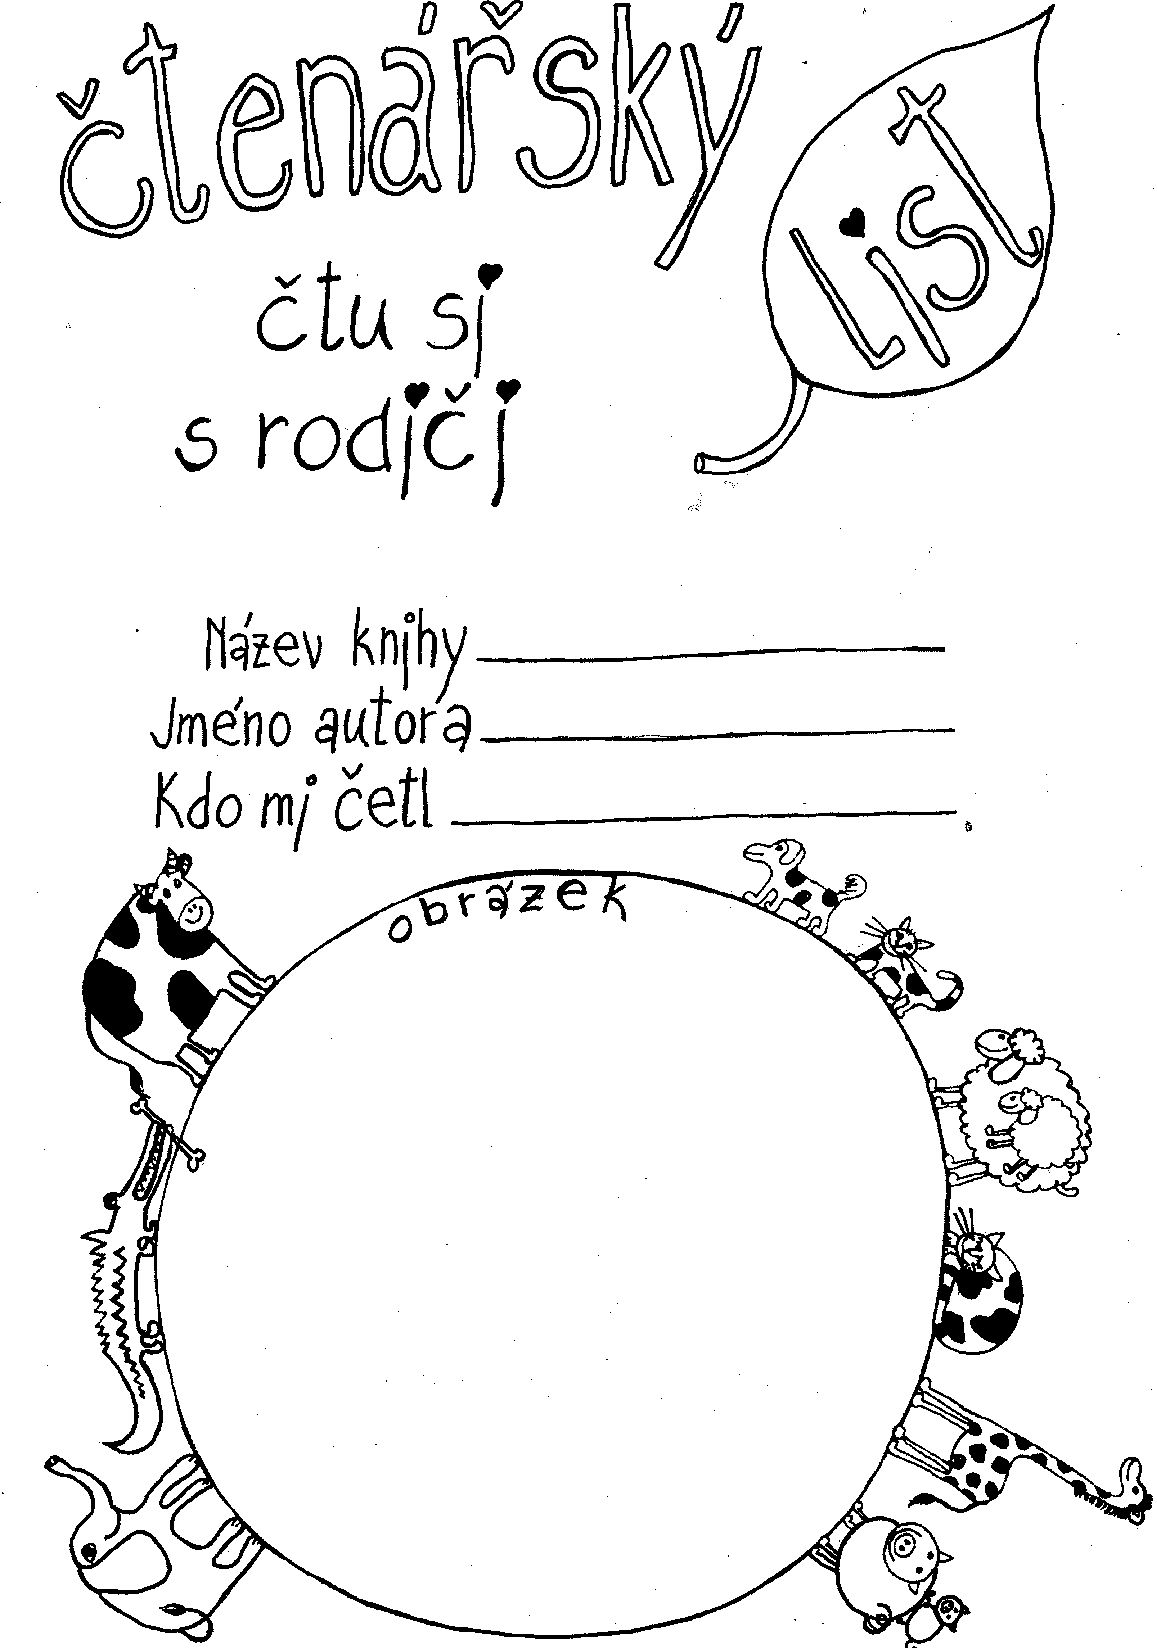 čtenářský
List
čtu si
s rodiči
Název knihy
Jméno autora
Kdo mi četl
obrázek